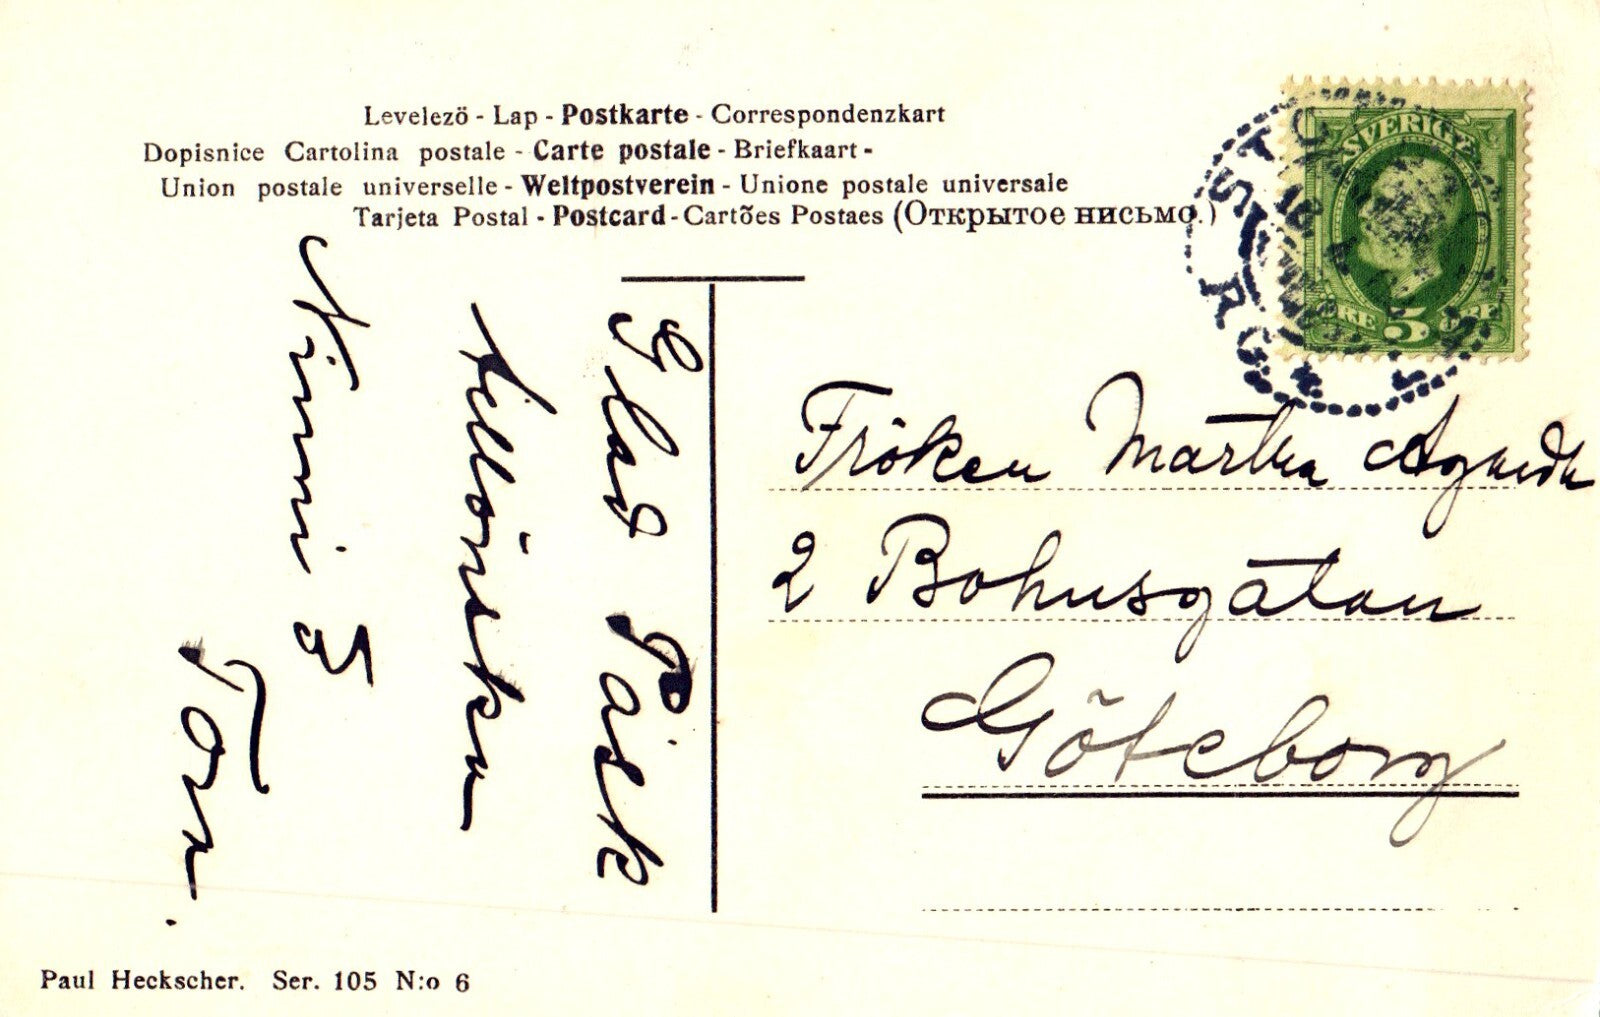 Levelezö - Lap - Postkarte - Correspondenzkart
Dopisnice Cartolina postale - Carte postale - Briefkaart -
Union postale universelle - Weltpostverein - Unione postale universale
Tarjeta Postal - Postcard - Cartões Postaes (Открытое нисьмо.)
SVERIGE
5 ÖRE
Glad Påsk
tillönskar
Ninni &
Tor.
Fröken Märtha
2 Bohusgatan
Göteborg
Paul Heckscher. Ser. 105 N:o 6